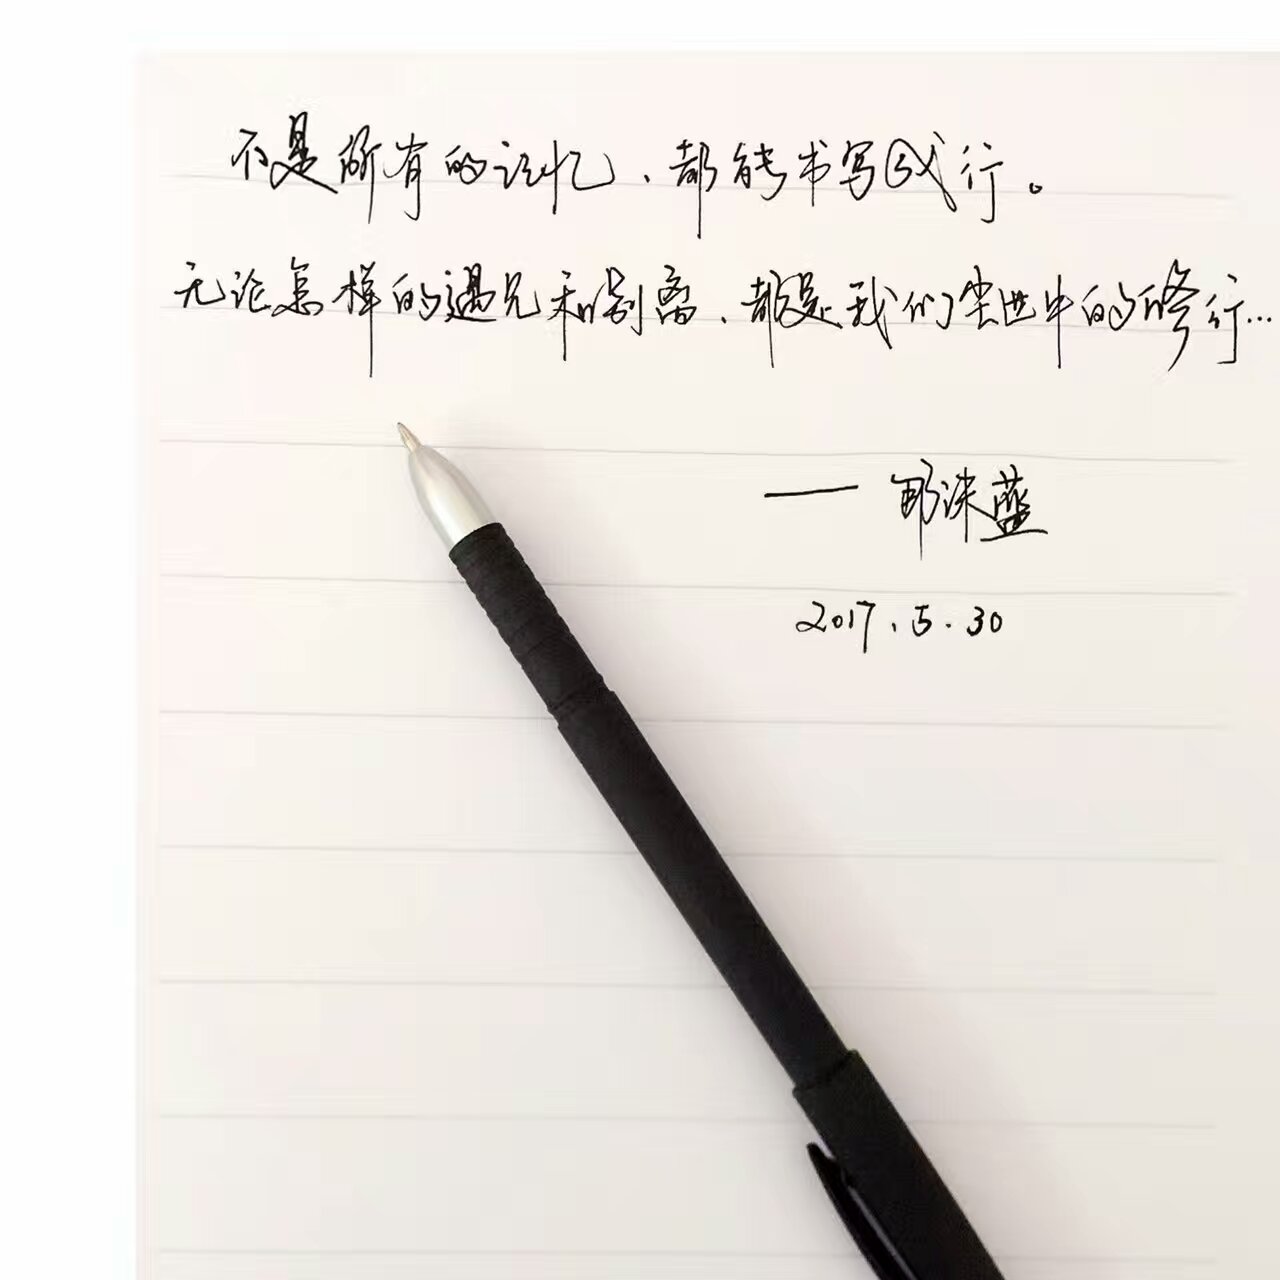 不是所有的记忆、都能书写成行。
无论怎样的遇见和别离、都是我们尘世中的修行…
蓝
2017.5.30